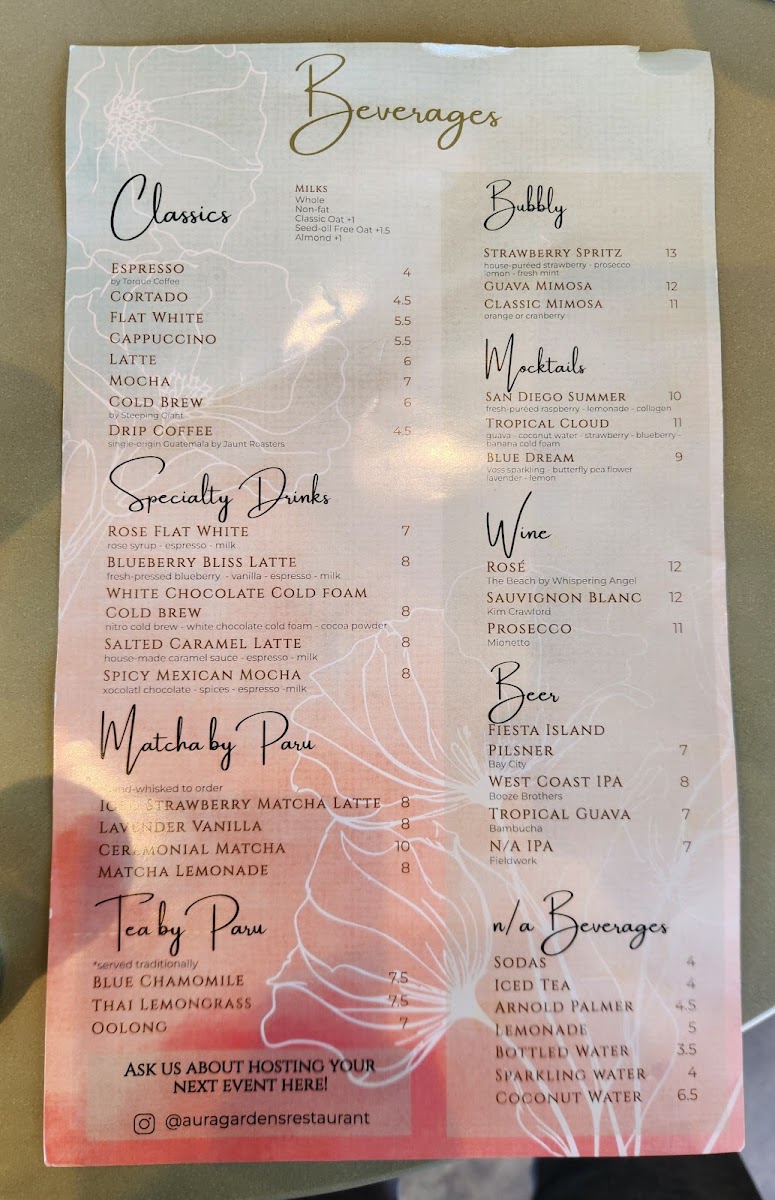 Beverages
Classics
MILKS
Whole
Non-fat
Classic Oat +1
Seed-oil Free Oat +1.5
Almond +1
ESPRESSO 4
by Torque Coffee
CORTADO 4.5
FLAT WHITE 5.5
CAPPUCCINO 5.5
LATTE 6
MOCHA 7
COLD BREW 6
by Steeping Giant
DRIP COFFEE 4.5
single-origin Guatemala by Jaunt Roasters
Specialty Drinks
ROSE FLAT WHITE 7
rose syrup - espresso - milk
BLUEBERRY BLISS LATTE 8
fresh-pressed blueberry - vanilla - espresso - milk
WHITE CHOCOLATE COLD FOAM
COLD BREW 8
nitro cold brew - white chocolate cold foam - cocoa powder
SALTED CARAMEL LATTE 8
house-made caramel sauce - espresso - milk
SPICY MEXICAN MOCHA 8
xocolatl chocolate - spices - espresso -milk
Matcha by Paru
whisked to order
ICED STRAWBERRY MATCHA LATTE 8
LAVENDER VANILLA 8
CEREMONIAL MATCHA 10
MATCHA LEMONADE 8
Tea by Paru
*served traditionally
BLUE CHAMOMILE 7.5
THAI LEMONGRASS 7.5
OOLONG 7
ASK US ABOUT HOSTING YOUR
NEXT EVENT HERE!
@auragardensrestaurant
Bubbly
STRAWBERRY SPRITZ 13
house-puréed strawberry - prosecco
lemon - fresh mint
GUAVA MIMOSA 12
CLASSIC MIMOSA 11
orange or cranberry
Mocktails
SAN DIEGO SUMMER 10
fresh-puréed raspberry - lemonade - collagen
TROPICAL CLOUD 11
guava - coconut water - strawberry - blueberry -
banana cold foam
BLUE DREAM 9
voss sparkling - butterfly pea flower
lavender - lemon
Wine
ROSÉ 12
The Beach by Whispering Angel
SAUVIGNON BLANC 12
Kim Crawford
PROSECCO 11
Mionetto
Beer
FIESTA ISLAND
PILSNER 7
Bay City
WEST COAST IPA 8
Booze Brothers
TROPICAL GUAVA 7
Bambucha
N/A IPA 7
Fieldwork
n/a Beverages
SODAS 4
ICED TEA 4
ARNOLD PALMER 4.5
LEMONADE 5
BOTTLED WATER 3.5
SPARKLING WATER 4
COCONUT WATER 6.5